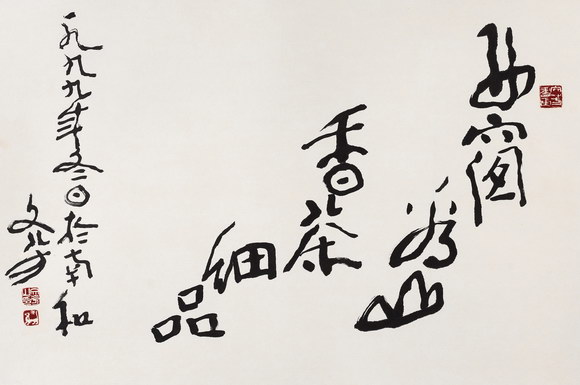 窗
看山
香茶
细
品
一九九九年冬日於南和
文